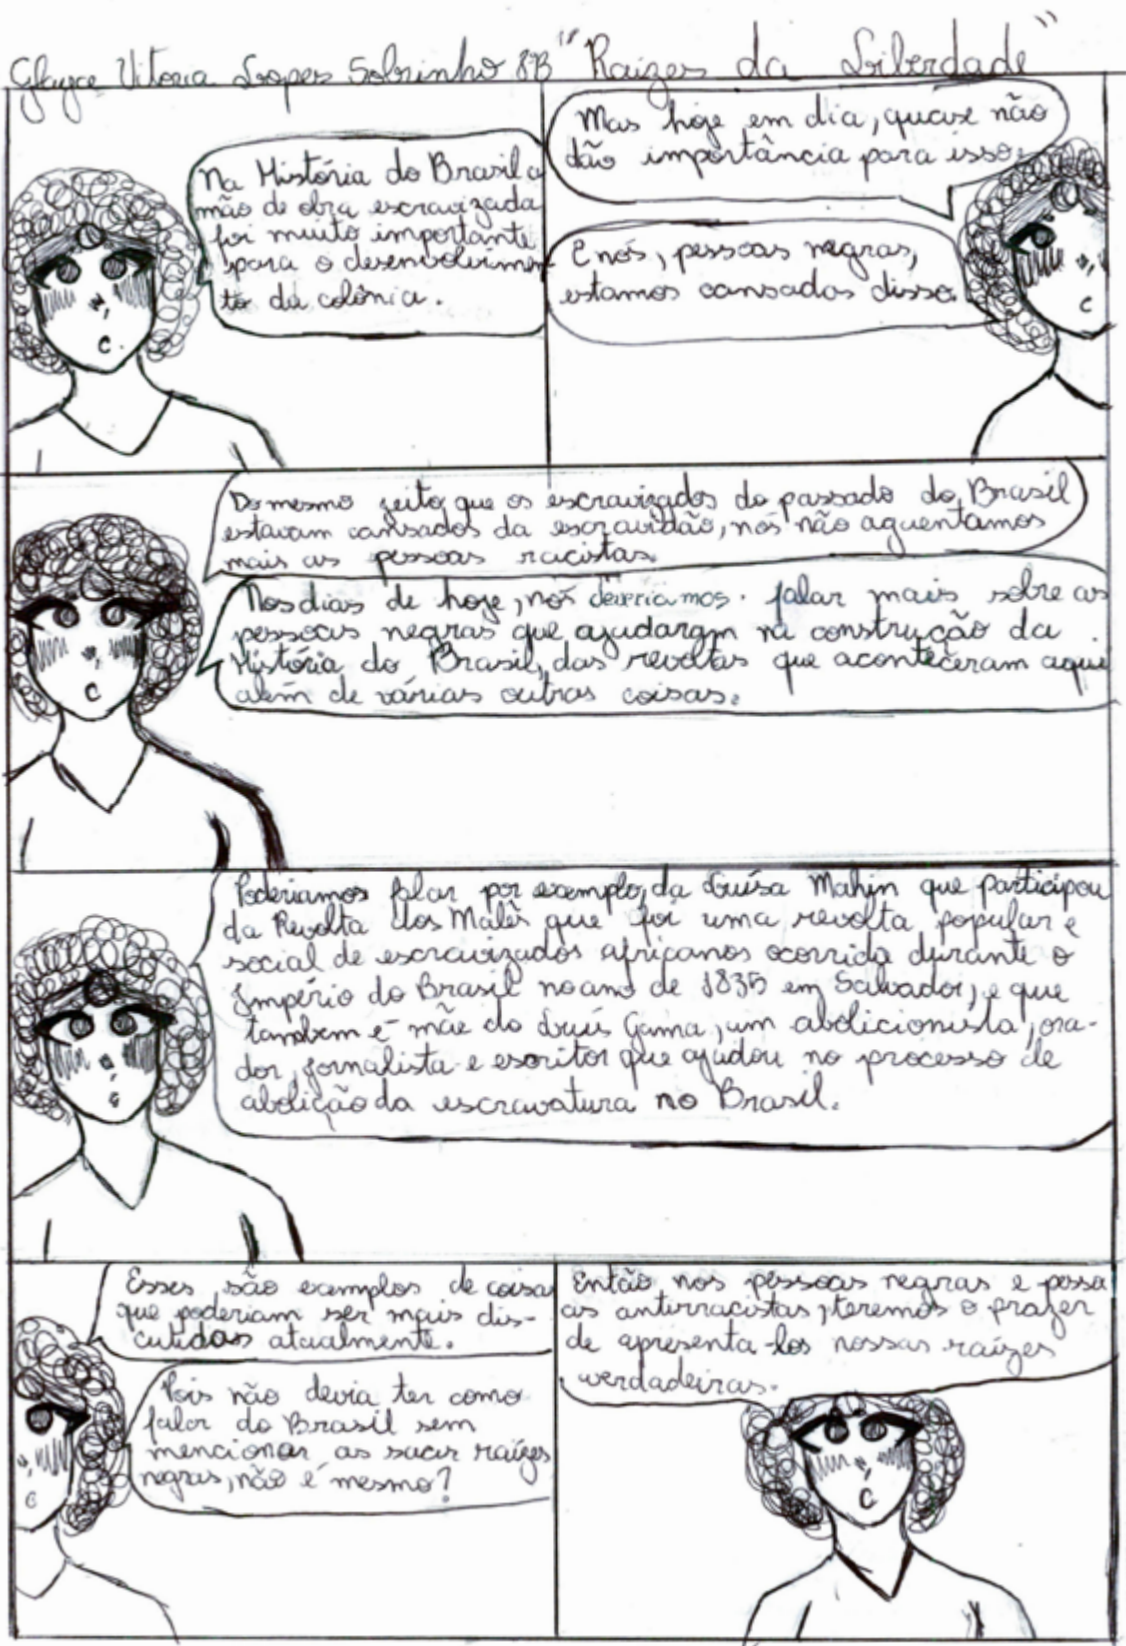 Glayce Vitoria Lopes Sobrinho 8B "Raizes da Liberdade"
Na História do Brasil a
mão de obra escravizada
foi muito importante
para o desenvolvimen
to da colônia.
Mas hoje em dia, quase não
dão importância para isso.
E nós, pessoas negras,
estamos cansadas disso.
Do mesmo jeito que os escravizados do passado do Brasil
estavam cansados da escravidão, nós não aguentamos
mais as pessoas racistas.
Nos dias de hoje, nós deveriamos falar mais sobre as
pessoas negras que ajudaram na construção da
História do Brasil, das revoltas que aconteceram aqui
além de várias outras coisas.
Poderiamos falar por exemplo, da Luísa Mahin que participou
da Revolta dos Malês que foi uma revolta popular e
social de escravizados africanos ocorrida durante o
Império do Brasil no ano de 1835 em Salvador, e que
tambem é mãe do Luís Gama, um abolicionista, ora-
dor, jornalista e escritor que ajudou no processo de
abolição da escravatura no Brasil.
Esses são exemplos de coisa
que poderiam ser mais dis-
cutidas atualmente.
Pois não devia ter como
falar do Brasil sem
mencionar as suas raízes
negras, não é mesmo?
Então nos pessoas negras e pesso
as antirracistas, teremos o prazer
de apresenta-los nossas raízes
verdadeiras.